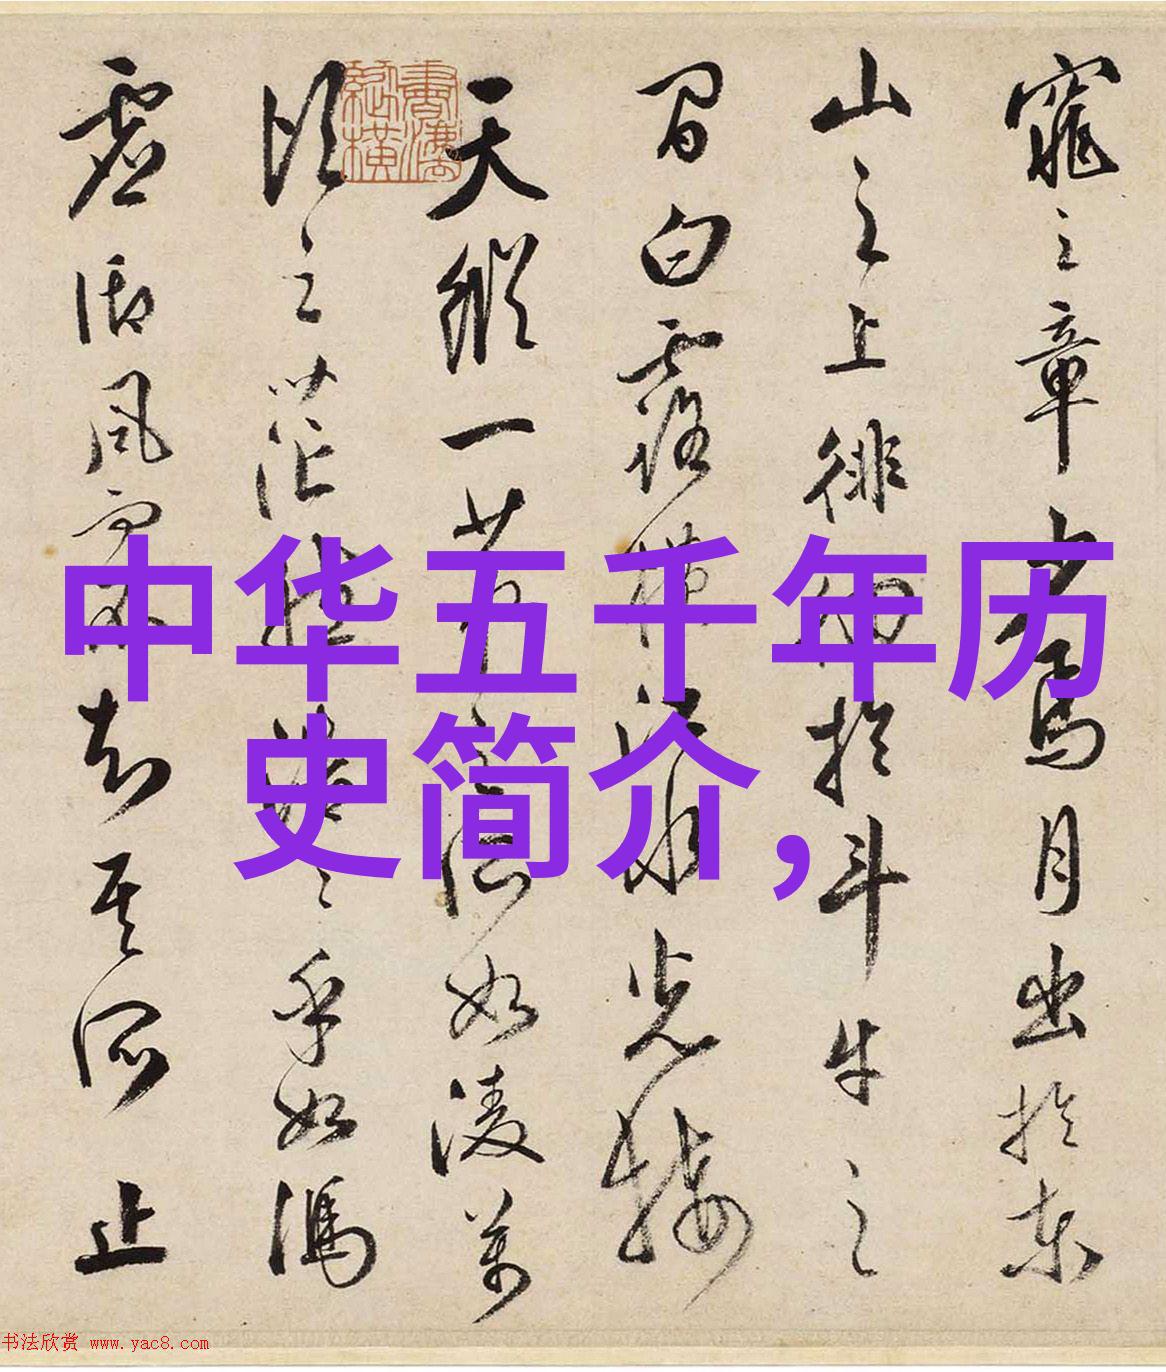 窕之章少焉月出於東
山之上徘徊於斗牛之
間白露横江水光接
天縱一葦之所如凌萬
頃之茫然浩々乎如馮
虚御風而不知其所止
中华五千年历
史简介，
书法欣赏 www.yac8.com